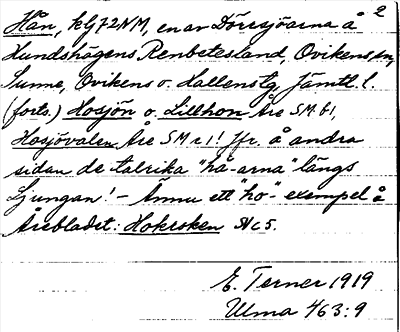 2
Hån, kg72NM, en av Dörrsjöarna å
Hundshögens Renbetesland, Ovikens sn,
Sunne, Ovikens o. Hallens tg, Jämtl. l.
(forts.) Hosjön o. Lillhon Åre SM b1,
Hosjövalen Åre SM c1! Jfr. å andra
sidan de talrika "hå-arna" längs
Ljungan! - Ännu ett "ho"-exempel å
Årebladet: Hokrsken Nc5.
E. Terner 1919
Ulma 463:9